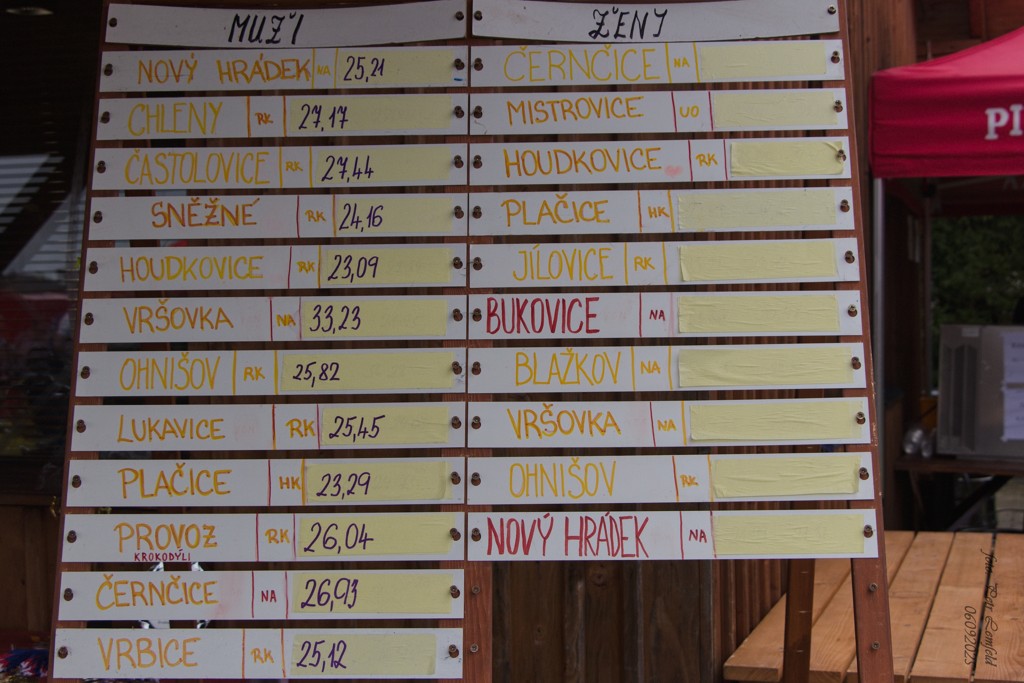 MUŽI
NOVÝ HRÁDEK NA 25,21
CHLENY RK 27,17
ČASTOLOVICE RK 27,44
SNĚŽNÉ RK 24,16
HOUDKOVICE RK 23,09
VRŠOVKA NA 33,23
OHNIŠOV RK 25,82
LUKAVICE RK 25,45
PLAČICE HK 23,29
PROVOZ RK 26,04
KROKODÝLI
ČERNČICE NA 26,93
VRBICE RK 25,12
ŽENY
ČERNČICE NA
MISTROVICE UO
HOUDKOVICE RK
PLAČICE HK
JÍLOVICE RK
BUKOVICE NA
BLAŽKOV NA
VRŠOVKA NA
OHNIŠOV RK
NOVÝ HRÁDEK NA
PI
06092025